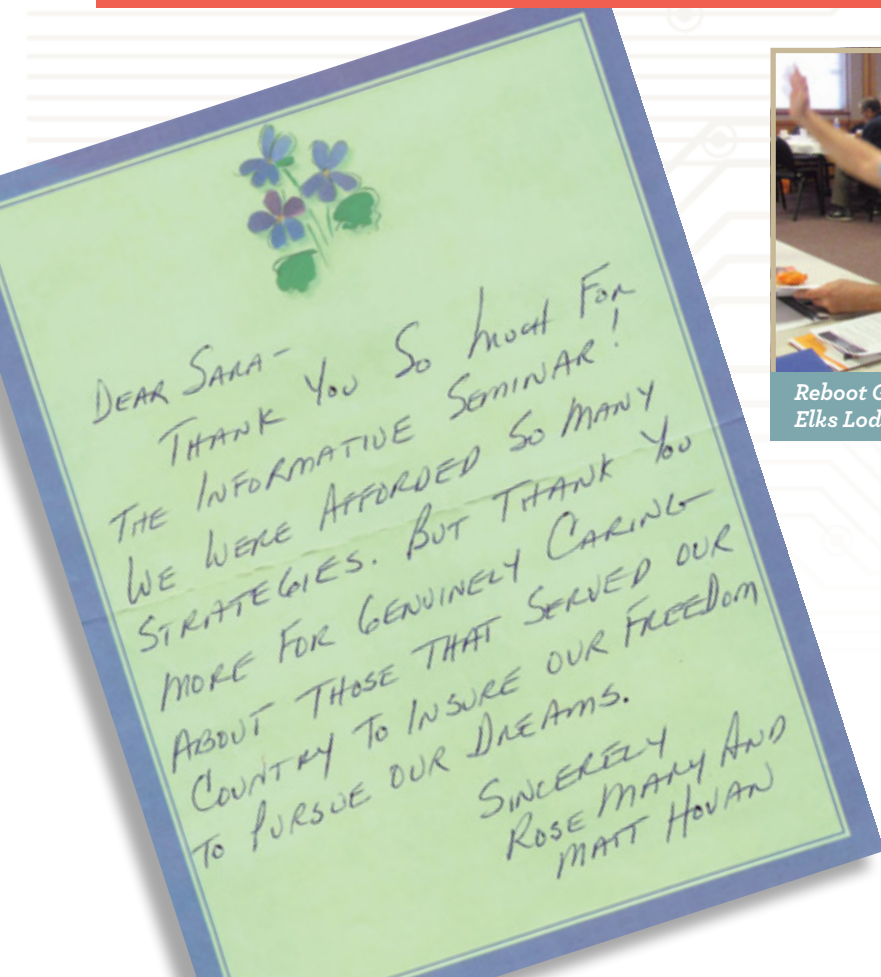 DEAR SARA-
THANK YOU SO MUCH FOR
THE INFORMATIVE SEMINAR!
WE WERE AFFORDED SO MANY
STRATEGIES. BUT THANK YOU
MORE FOR GENUINELY CARING
ABOUT THOSE THAT SERVED OUR
COUNTRY TO INSURE OUR FREEDOM
TO PURSUE OUR DREAMS.
SINCERELY
ROSE MARY AND
MATT HOVAN
Reboot
Elks